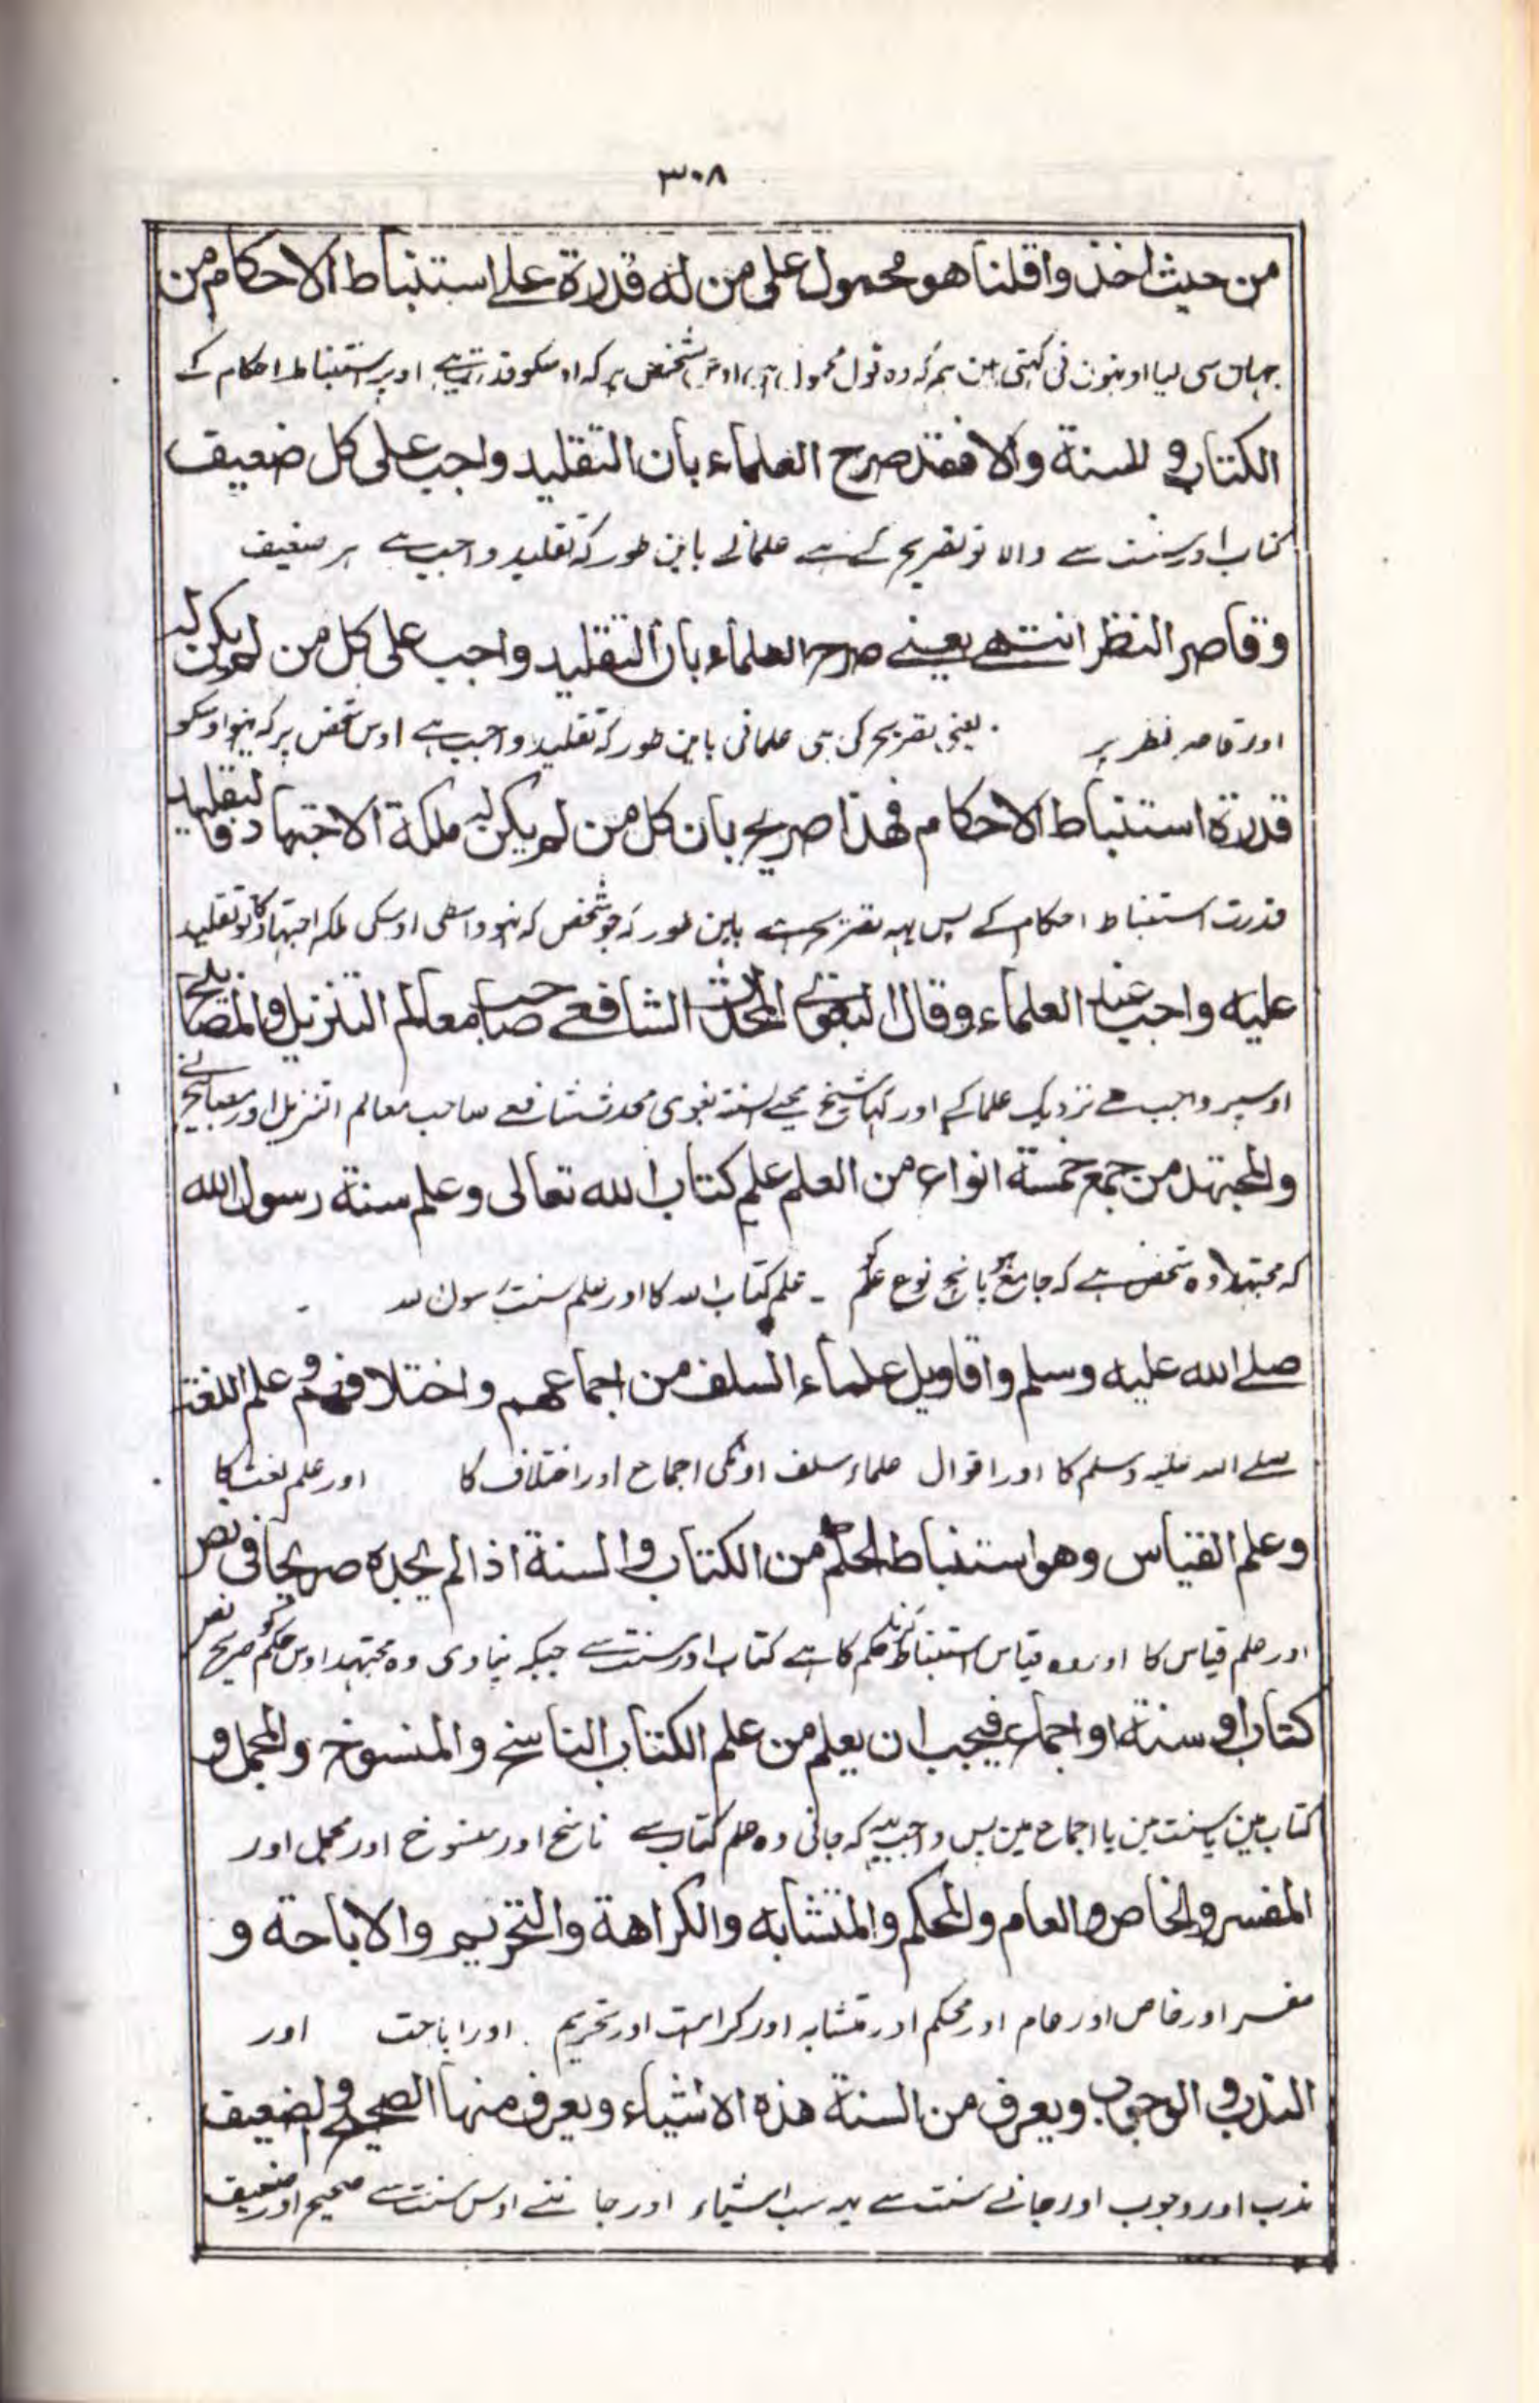 ۳۰۸
من حيث اخذوا قلنا هو محمول على من له قدرة على استنباط الاحكام من
جہان سی لیا اونہون نی کہتی ہین ہم کہ وہ قول محمول ہی اوس شخص پر کہ اوسکو قدرت ہے اوپر استنباط احکام کے
الكتاب و السنة والا فقد صرح العلماء بان التقليد واجب على كل ضعيف
کتاب اور سنت سے والا تو تصریح کی ہے علمانے باین طور کہ تقلید واجب ہے ہر ضعیف
وقاصر النظر انتهى يعنى صرح العلماء بان التقليد واجب على كل من لم يكن له
اور قاصر نظر پر یعنی تصریح کی ہی علمانی باین طور کہ تقلید واجب ہے اوس شخص پر کہ نہو اوسکو
قدرة استنباط الاحكام فهذا صريح بان كل من لم يكن له ملكة الاجتهاد فالتقليد
قدرت استنباط احکام کے پس یہہ تصریح ہے باین طور کہ جو شخص کہ نہو واسطی اوسکی ملکہ اجتہاد کا تو تقلید
عليه واجب عند العلماء وقال البغوى المحدث الشافعى صاحب معالم التنزيل والمصابيح
اوسپر واجب ہے نزدیک علما کے اور کہا شیخ محیی السنہ بغوی محدث شافعے صاحب معالم التنزیل اور مصابیح نے
والمجتهد من جمع خمسة انواع من العلم علم كتاب الله تعالى وعلم سنة رسول الله
کہ مجتہد وہ شخص ہے کہ جامع ہو پانچ نوع علم کو ۔ علم کتاب اللہ کا اور علم سنت رسول اللہ
صلى الله عليه وسلم واقاويل علماء السلف من اجماعهم واختلافهم وعلم اللغة
صلے اللہ علیہ وسلم کا اور اقوال علماء سلف اونکی اجماع اور اختلاف کا اور علم لغت کا
وعلم القياس وهو استنباط الحكم من الكتاب والسنة اذا لم يجده صريحا فى نص
اور علم قیاس کا اور وہ قیاس استنباط کرنا حکم کا ہے کتاب اور سنت سے جبکہ نپاوی وہ مجتہد اوس حکم کو صریح نص
كتاب او سنة او اجماع فيجب ان يعلم من علم الكتاب الناسخ والمنسوخ والمجمل و
کتاب مین یا سنت مین یا اجماع مین پس واجب ہے کہ جانی وہ علم کتاب سے ناسخ اور منسوخ اور مجمل اور
المفسر والخاص والعام والمحكم والمتشابه والكراهة والتحريم والاباحة و
مفسر اور خاص اور عام اور محکم اور متشابہ اور کراہت اور تحریم اور اباحت اور
الندب و الوجوب ويعرف من السنة هذه الاشياء ويعرف منها الصحيح والضعيف
ندب اور وجوب اور جانے سنت سے یہ سب اشیاء اور جاننے اوس سنت سے صحیح اور ضعیف